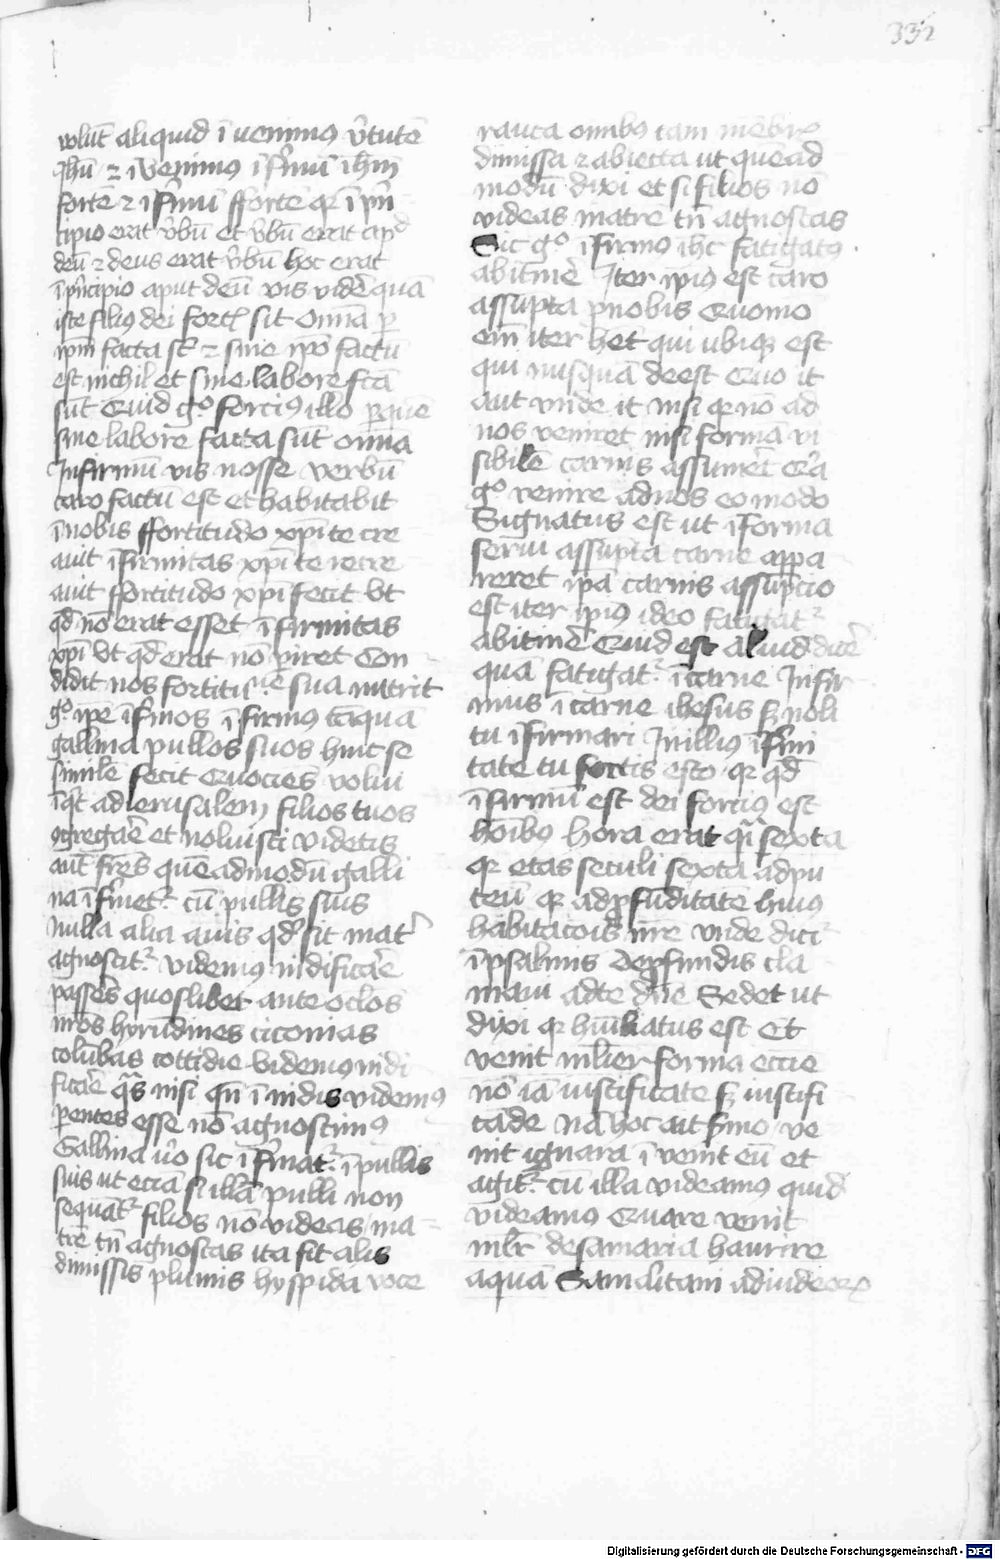 332
volūt aliquid ī venimus v̉tutē
Jhū ⁊ ī venimus īfirmū ihm̄
fortē ⁊ īfirmū ffortē qr ī pn̄
cipio erat v̉bū et v̉bū erat apd
deū ⁊ deus erat v̉bū hoc erat
īpn̄cipio aput deū vis vidē quā
iste filius dei fort sit Omīa p
ipm̄ facta st ⁊ sine ipo factū
est nichil et sine labore fcā
sūt Quid gº forcius illo p quē
sine labore facta sūt omīa
Infirmū vis nosse verbū
caro factū est et habitabit
ī nobis ffortitudo xpi te cre
auit īfirmitas xpi te recre
auit ffortitudo xpi fecit vt
qd nō erat esset īfirmitas
xpi vt qd erat nō piret Con
didit nos fortitue sua nutrit
gº ipe īfirmos īfirmus tāquā
gallina pullos suos huic se
similē fecit Quocies volui
īqt ad ierusalem filios tuos
ꝯgregare et noluisti videtis
aut frēs quēadmodū galli
na īfirmet cū pullis suis
Nulla alia auis qd sit mat
agnoscit videmus nidificare
passeres quoslibet ante oclos
nr̄os hyrūdines ciconias
colūbas cottidie videmus nidi
ficare qs nisi qn̄ ī nidis videmus
pentes esse nō agnoscimus
Gallina v̉o sic īfirmat ī pullis
suis ut eciā si illā pulli non
sequāt filios nō videas ma
trē tn̄ agnoscas ita fit alis
dimissis plumis hyspida voce
rauca omibus tam mēbris
dimissa ⁊ abiecta ut quēad
modū dixi et si filios nō
videas matre tn̄ agnoscas
Sic gº īfirmus ihc fatigatus
ab itine Iter ipius est caro
assūpta p nobis Quomō
em̄ iter het qui ubique est
qui nusquā deest Quo it
aut vnde it nisi qr nō ad
nos veniret nisi formā vi
sibilē carnis assumet Qr̄a
gº venire ad nos eo modo
Signatus est ut ī forma
serui assūpta carne appa
reret ipa carnis assūpcio
est iter ipius ideo fatigat
ab itine Quid est aliud dite
quā fatigat ī carne Infir
mus ī carne ihesus sz noli
tu īfirmari In illius īfirmi
tate tu fortis esto qr qd
īfirmū est dei forcius est
hoībus Hora erat qi sexta
qr etas seculi sexta ad pu
teū qr ad pfūditatē huius
habitacōis nr̄e vnde dicit
ī psalmis De pfundis cla
maui ad te dn̄e Sedet ut
dixi qr hūiliatus est Et
venit mlier forma eccīe
nō iā iustificate sz iustifi
cāde Nā hoc ait smo ve
nit ignara ī venit eū et
agit cū illa videamus quid
videamus Quare venit
mlr̄ de samaria haurire
aquā Samaritani ad iudeorum